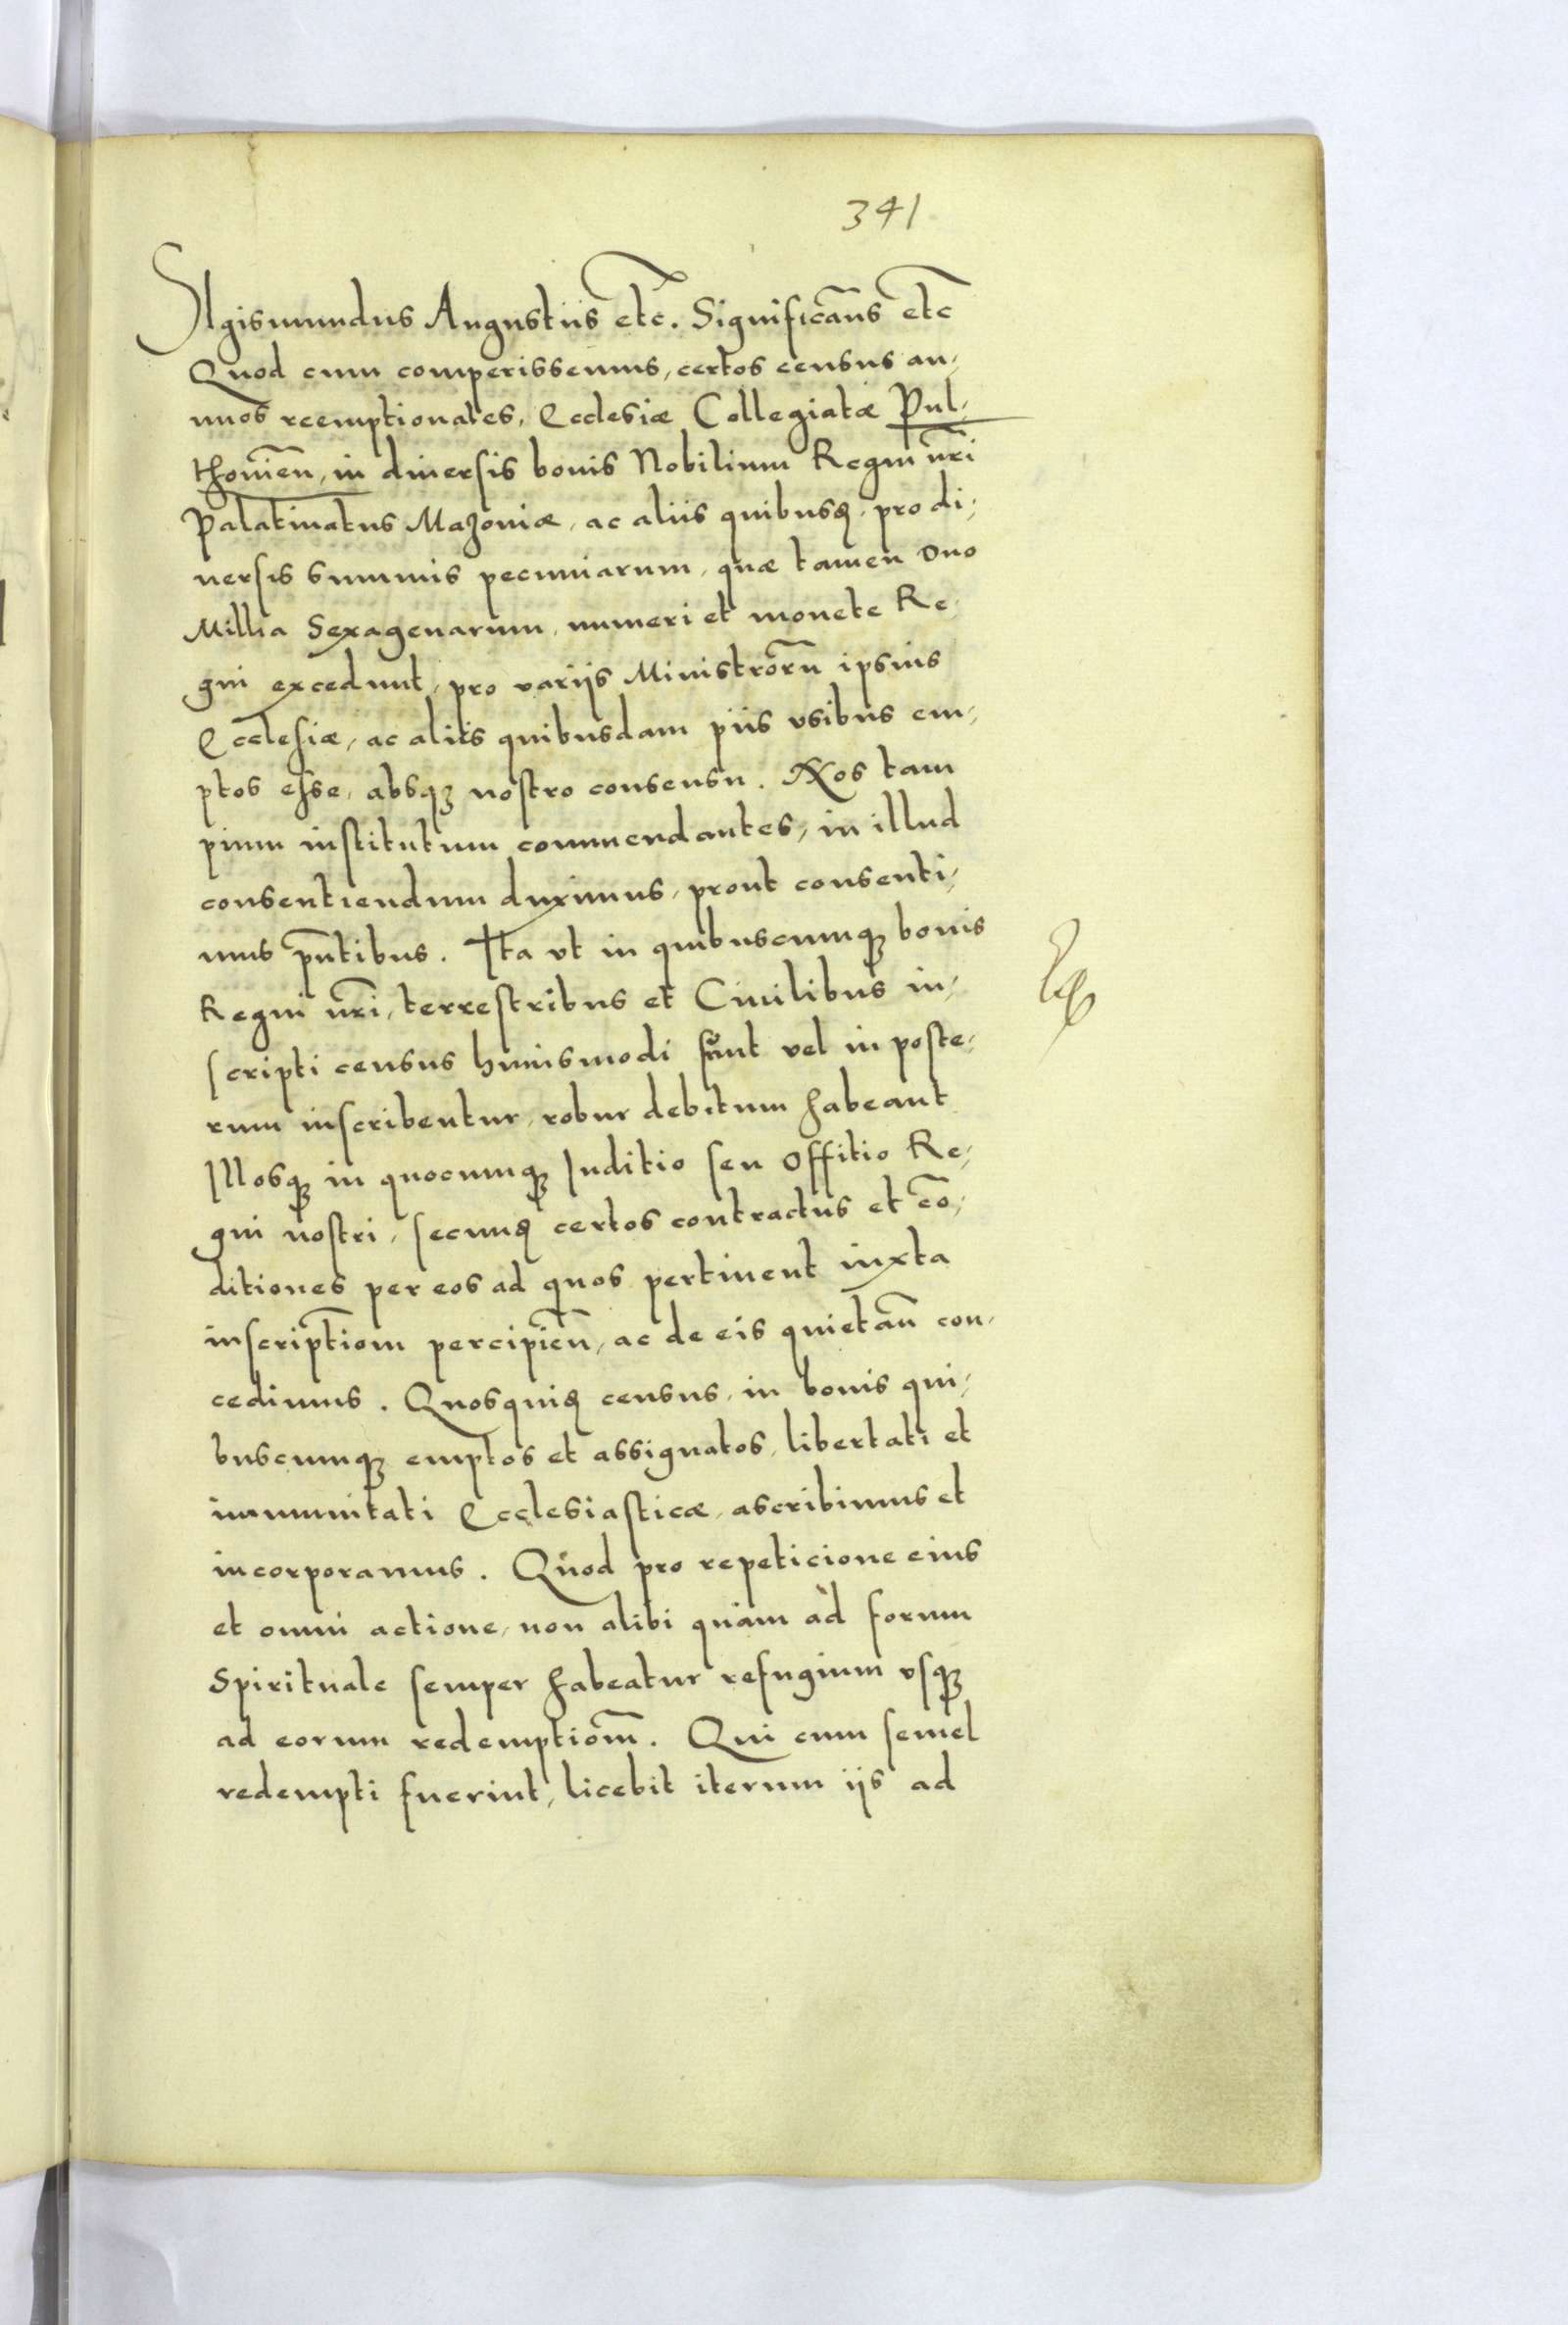 341
SIgismundus Augustus etc. Significam̃s etc
Quod cum comperissemus, certos census an-
nuos reemptionales, Ecclesiæ Collegiatæ Pul-
thovien̄, in diversis bonis Nobilium Regni nr̄i
Palatinatus Mazoviæ, ac aliis quibusꝗ, pro di-
versis summis pecuniarum, quæ tamen duo
Millia Sexagenarum, numeri et monete Re-
gni excedunt, pro variis Ministror̄u ipsius
Ecclesiæ, ac aliis quibusdam piis vsibus em-
ptos esse, absqꝫ nostro consensu. Nos tam
pium institutum commendantes, in illud
consentiendum duximus, prout consenti-
mus pn̄tibus. Ita vt in quibuscumqꝫ bonis
Regni nr̄i, terrestribus et Civilibus in-
scripti census huiusmodi sunt vel in poste-
rum inscribentur, robur debitum habeant
Illosqꝫ in quocumqꝫ Iuditio seu Offitio Re-
gni nostri, secunꝗ certos contractus et cō-
ditiones per eos ad quos pertinent iuxta
inscriptiom̄ percipien̄, ac de eis quietan̄ con-
cedimus. Quosquiꝗ census, in bonis qui-
buscumqꝫ emptos et assignatos, libertati et
immunitati Ecclesiasticæ, ascribimus et
incorporamus. Quod pro repeticione eius
et omni actione, non alibi quàm ad forum
Spirituale semper habeatur refugium vsqꝫ
ad eorum redemptiom̄. Qui cum semel
redempti fuerint, licebit iterum iis ad